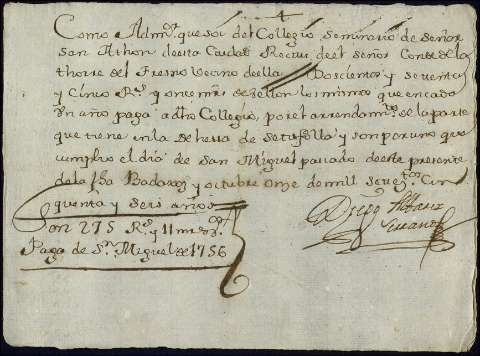 Como Admor. que soi del Collegio Seminario de Señor
San Athon de esta Ciudad Reciui del señor Conde de la
thorre del Fresno Vecino de ella Doscientos y setenta
y Cinco Rs. y once mrs. de vellon los mismos que en cada
Vn año paga a dho Collegio, por el arrendamto. de la parte
que tiene en la dehessa de y son por uno que
cumplio el dia de San Miguel passado de este presente
de la fha Badaxoz y octubre onze de mill setezos. Cin
quenta y seis años
Son 275 Rs. y 11 mrs. von.
Paga de Sn. Miguel de 1756
Diego